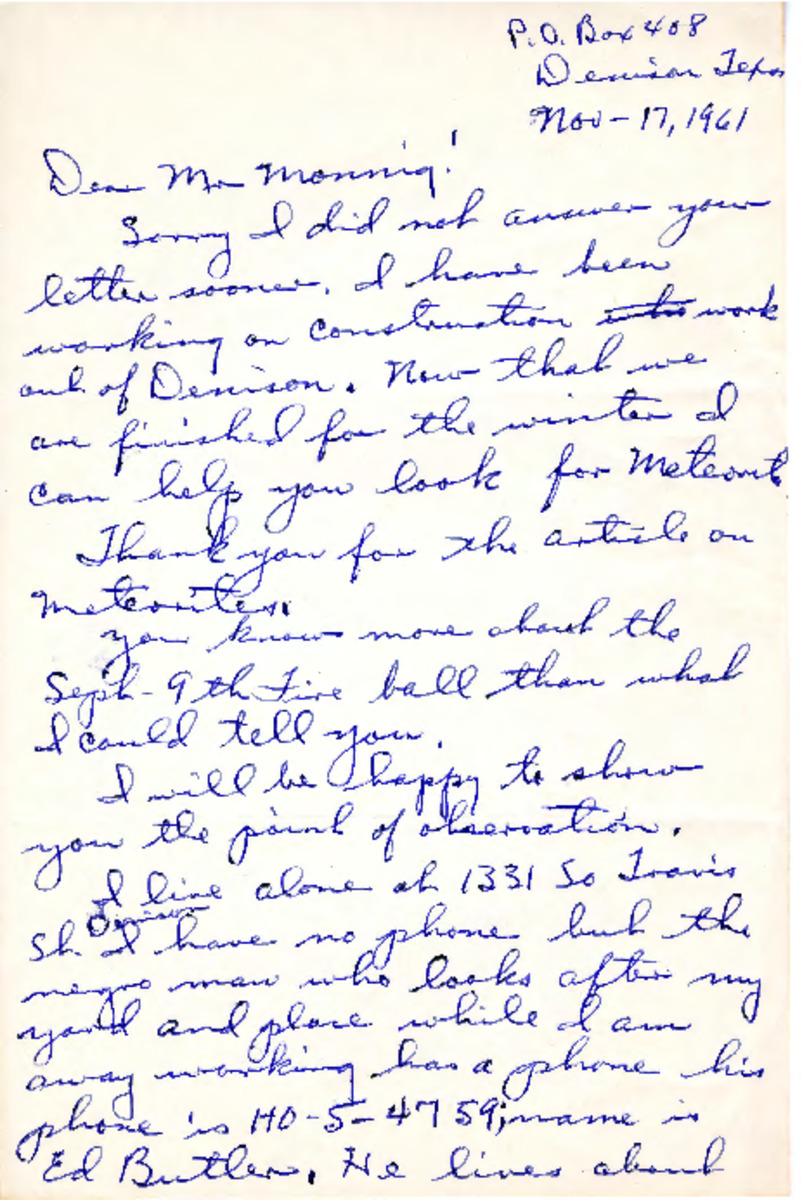 P.O. Box 408
Denison Texas
Nov-17, 1961
Dear Mr Monnig!
Sorry I did not answer your
letter sooner. I have been
working on construction work
out of Denison. Now that we
are finished for the winter I
can help you look for Meteorite
Thank you for the article on
Meteorites.
You know more about the
Sept-9th Fire ball than what
I could tell you.
I will be happy to show
you the point of observation.
I live alone at 1331 So Travis
Denison
St. I have no phone but the
negro man who looks after my
yard and place while I am
away working has a phone his
phone is HO-5-4759; name is
Ed Butler. He lives about